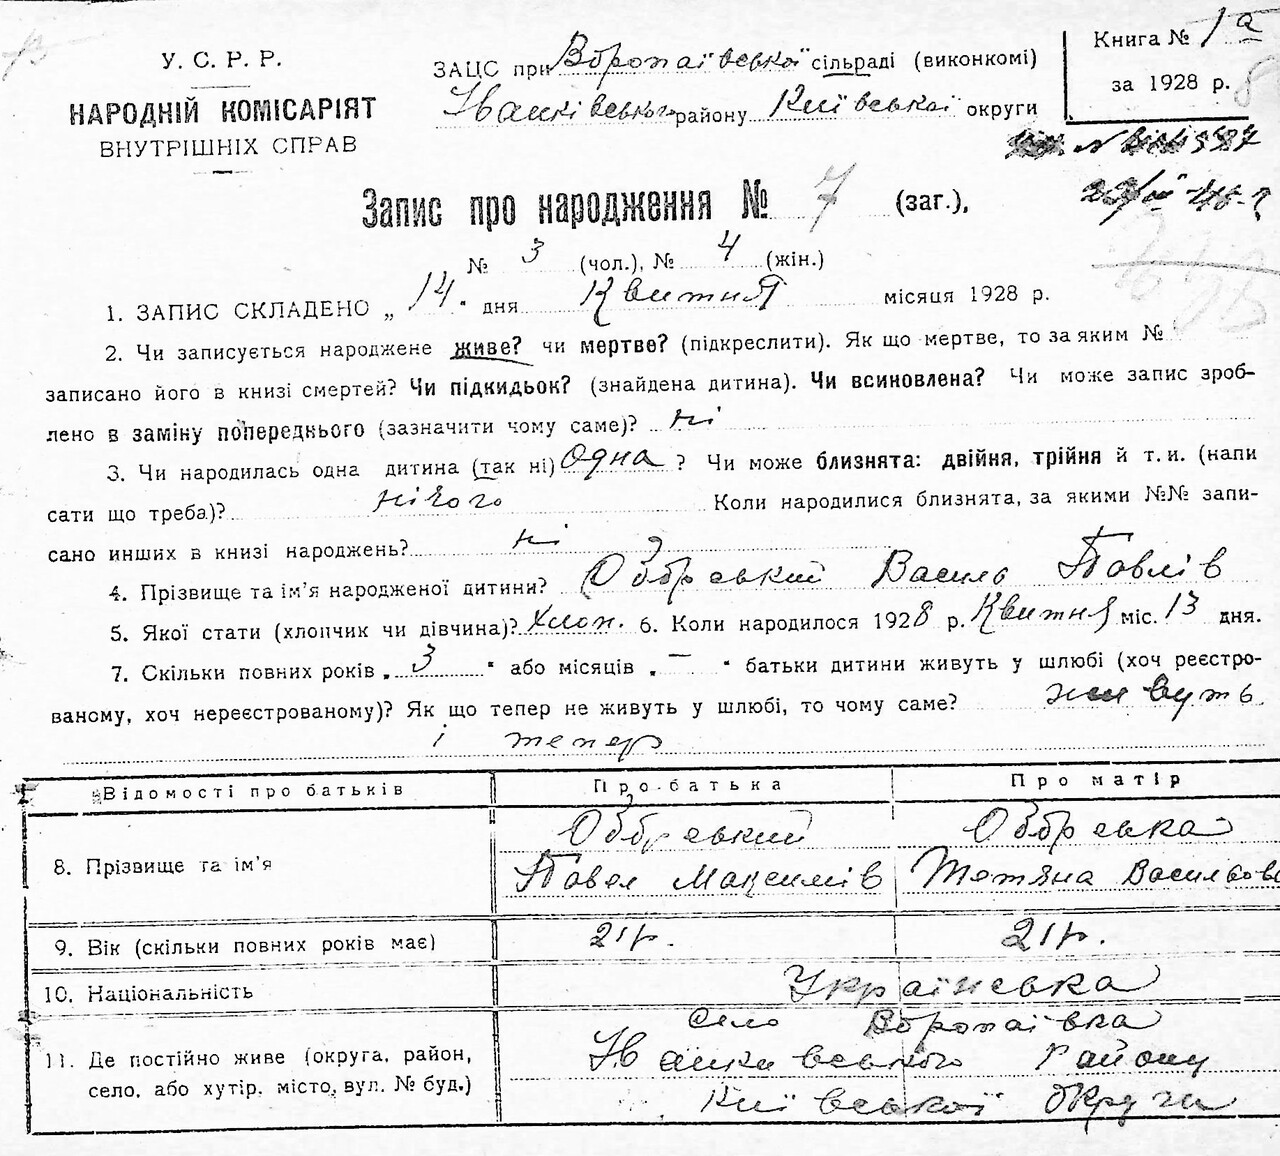 У. С. Р. Р.
НАРОДНІЙ КОМІСАРІЯТ
ВНУТРІШНІХ СПРАВ
ЗАЦС при Воропаївської сільраді (виконкомі)
Іванківського району Київської округи
Книга № 1а
за 1928 р.
Запис про народження № 7 (заг.),
№ 3 (чол.), № 4 (жін.)
1. ЗАПИС СКЛАДЕНО „ 14 " дня Квитня місяця 1928 р.
2. Чи записується народжене живе? чи мертве? (підкреслити). Як що мертве, то за яким №
записано його в книзі смертей? Чи підкидьок? (знайдена дитина). Чи всиновлена? Чи може запис зроб-
лено в заміну попереднього (зазначити чому саме)? ні
3. Чи народилась одна дитина (так ні) Одна ? Чи може близнята: двійня, трійня й т. и. (напи
сати що треба)? нічого Коли народилися близнята, за якими №№ запи-
сано инших в книзі народжень? ні
4. Прізвище та ім'я народженої дитини? Василь Павлів
5. Якої стати (хлопчик чи дівчина)? хлоп. 6. Коли народилося 1928 р. Квитня міс. 13 дня.
7. Скільки повних років „ 3 " або місяців „ — " батьки дитини живуть у шлюбі (хоч реєстро-
ваному, хоч нереєстрованому)? Як що тепер не живуть у шлюбі, то чому саме? живуть
і тепер
Відомості про батьків Про батька Про матір
8. Прізвище та ім'я
Павел Максимів Тетяна Васильова
9. Вік (скільки повних років має) 21 р. 21 р.
10. Національність Українська
11. Де постійно живе (округа, район,
село, або хутір, місто, вул. № буд.)
Село Воропаївка
Іванкивського Району
Київської Округи